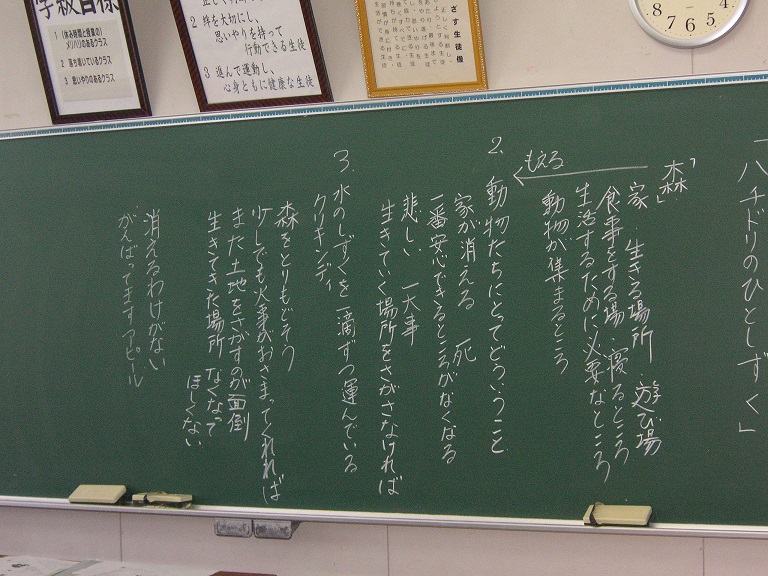 学級目標
1 (休み時間と授業の)
メリハリのあるクラス
2 落ち着いているクラス
3 思いやりのあるクラス
2 絆を大切にし、
思いやりを持って
行動できる生徒
3 進んで運動し、
心身ともに健康な生徒
ざす生徒像
8 7 6 5
「ハチドリのひとしずく」
"森"
家 生きる場所 遊び場
食事をする場 寝るところ
生活するために必要なところ
動物が集まるところ
もえる
2. 動物たちにとってどういうこと
家が消える 死
一番安心できるところがなくなる
悲しい 一大事
生きていく場所をさがさなければ
3. 水のしずくを一滴ずつ運んでいる
クリキンディ
森をとりもどそう
少しでも火事がおさまってくれれば
また土地をさがすのが面倒
生きてきた場所 なくなって
ほしくない
消えるわけがない
がんばってますアピール